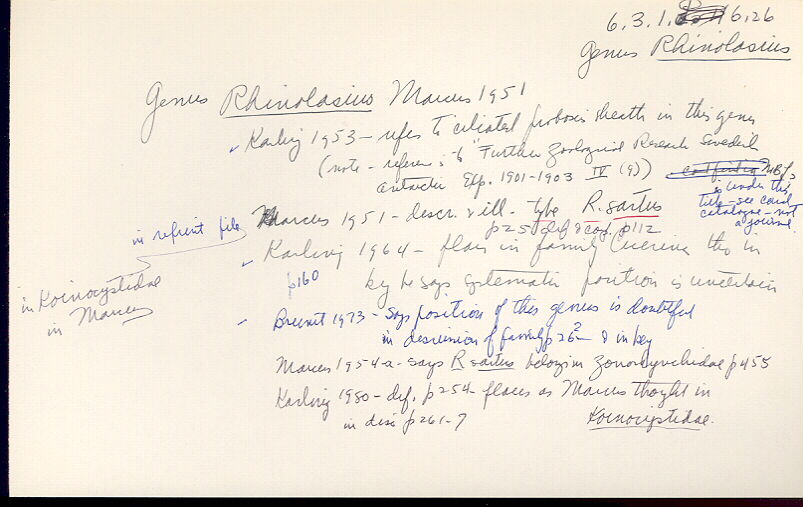 6.3.1. 16.26
Genus Rhinolasius
Genus Rhinolasius Marcus 1951
Karling 1953 - refers to ciliated proboscis sheath in this genus
(note - reference is to "Further Zoological Research Swedish
Antarctic Exp. 1901-1903 IV (9))
MBL,
is under this
title - see card
catalogue - not
a journal
in reprint file
Marcus 1951 - descr. & ill. - type R. sartus
p25 def p112
Karling 1964 - places in family Cicerina tho in
p160
key he says systematic position is uncertain
in Koinocystidae
in Marcus
Brunet 1973 - says position of this genus is doubtful
in discussion of family p262 & in key
Marcus 1954-a - says R sartus belongs in p455
Karling 1980 - def. p254 - places as Marcus thought in
in disc p261-7
Koinocystidae.